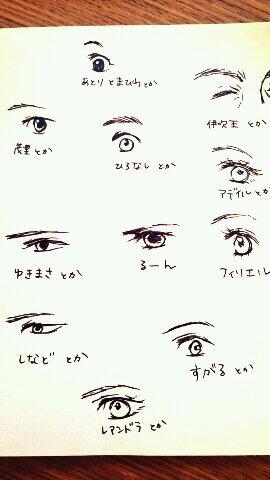 あとりとまひわとか
伊吹王とか
茂里とか
ひろなしとか
アデイルとか
ゆきまさとか
るーん
フィリエル
しなどとか
すがるとか
レアンドラとか